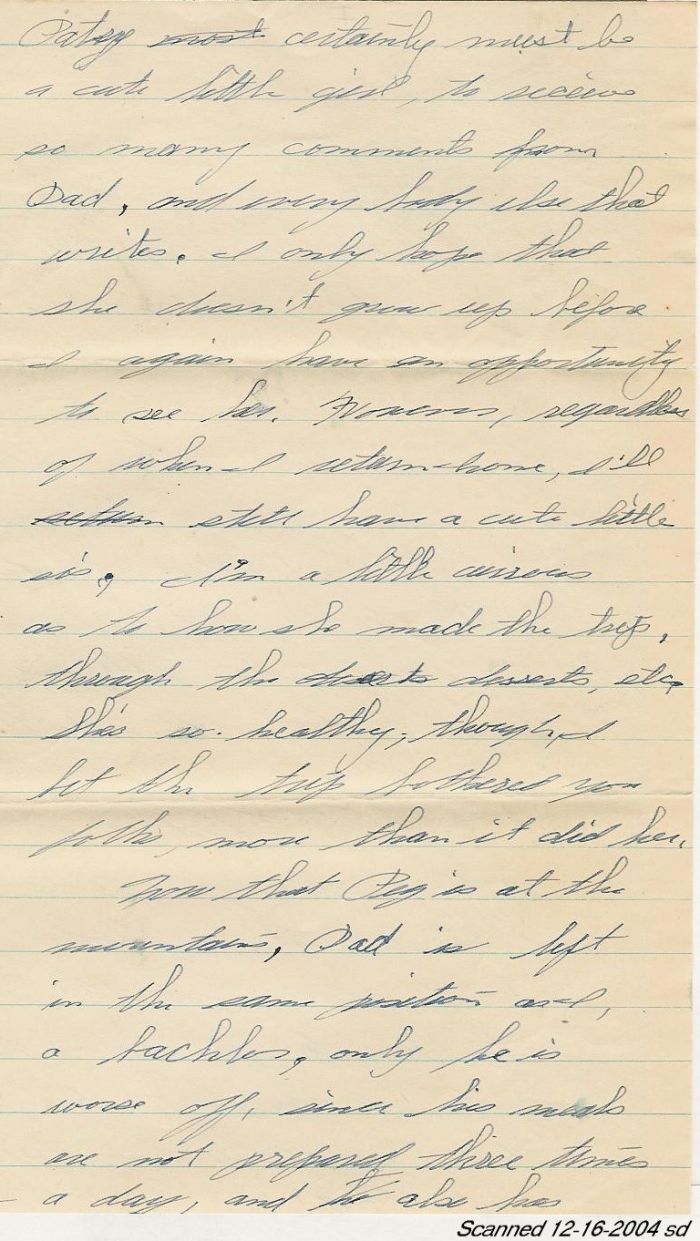 Patsy most certainly must be
a cute little girl, to receive
so many comments from
Dad, and every body else that
writes. I only hope that
she doesn't grow up before
I again have an opportunity
to see her. However, regardless
of when I return home, I'll
return still have a cute little
sis. I'm a little curious
as to how she made the trip,
through the deserts desserts, etc.
She's so healthy, though, I
bet the trip bothered you
folks, more than it did her.
Now that Peg is at the
mountains, Dad is left
in the same position as I,
a bachlor, only he is
worse off, since his meals
are not prepared three times
a day, and he also has
Scanned 12-16-2004 sd